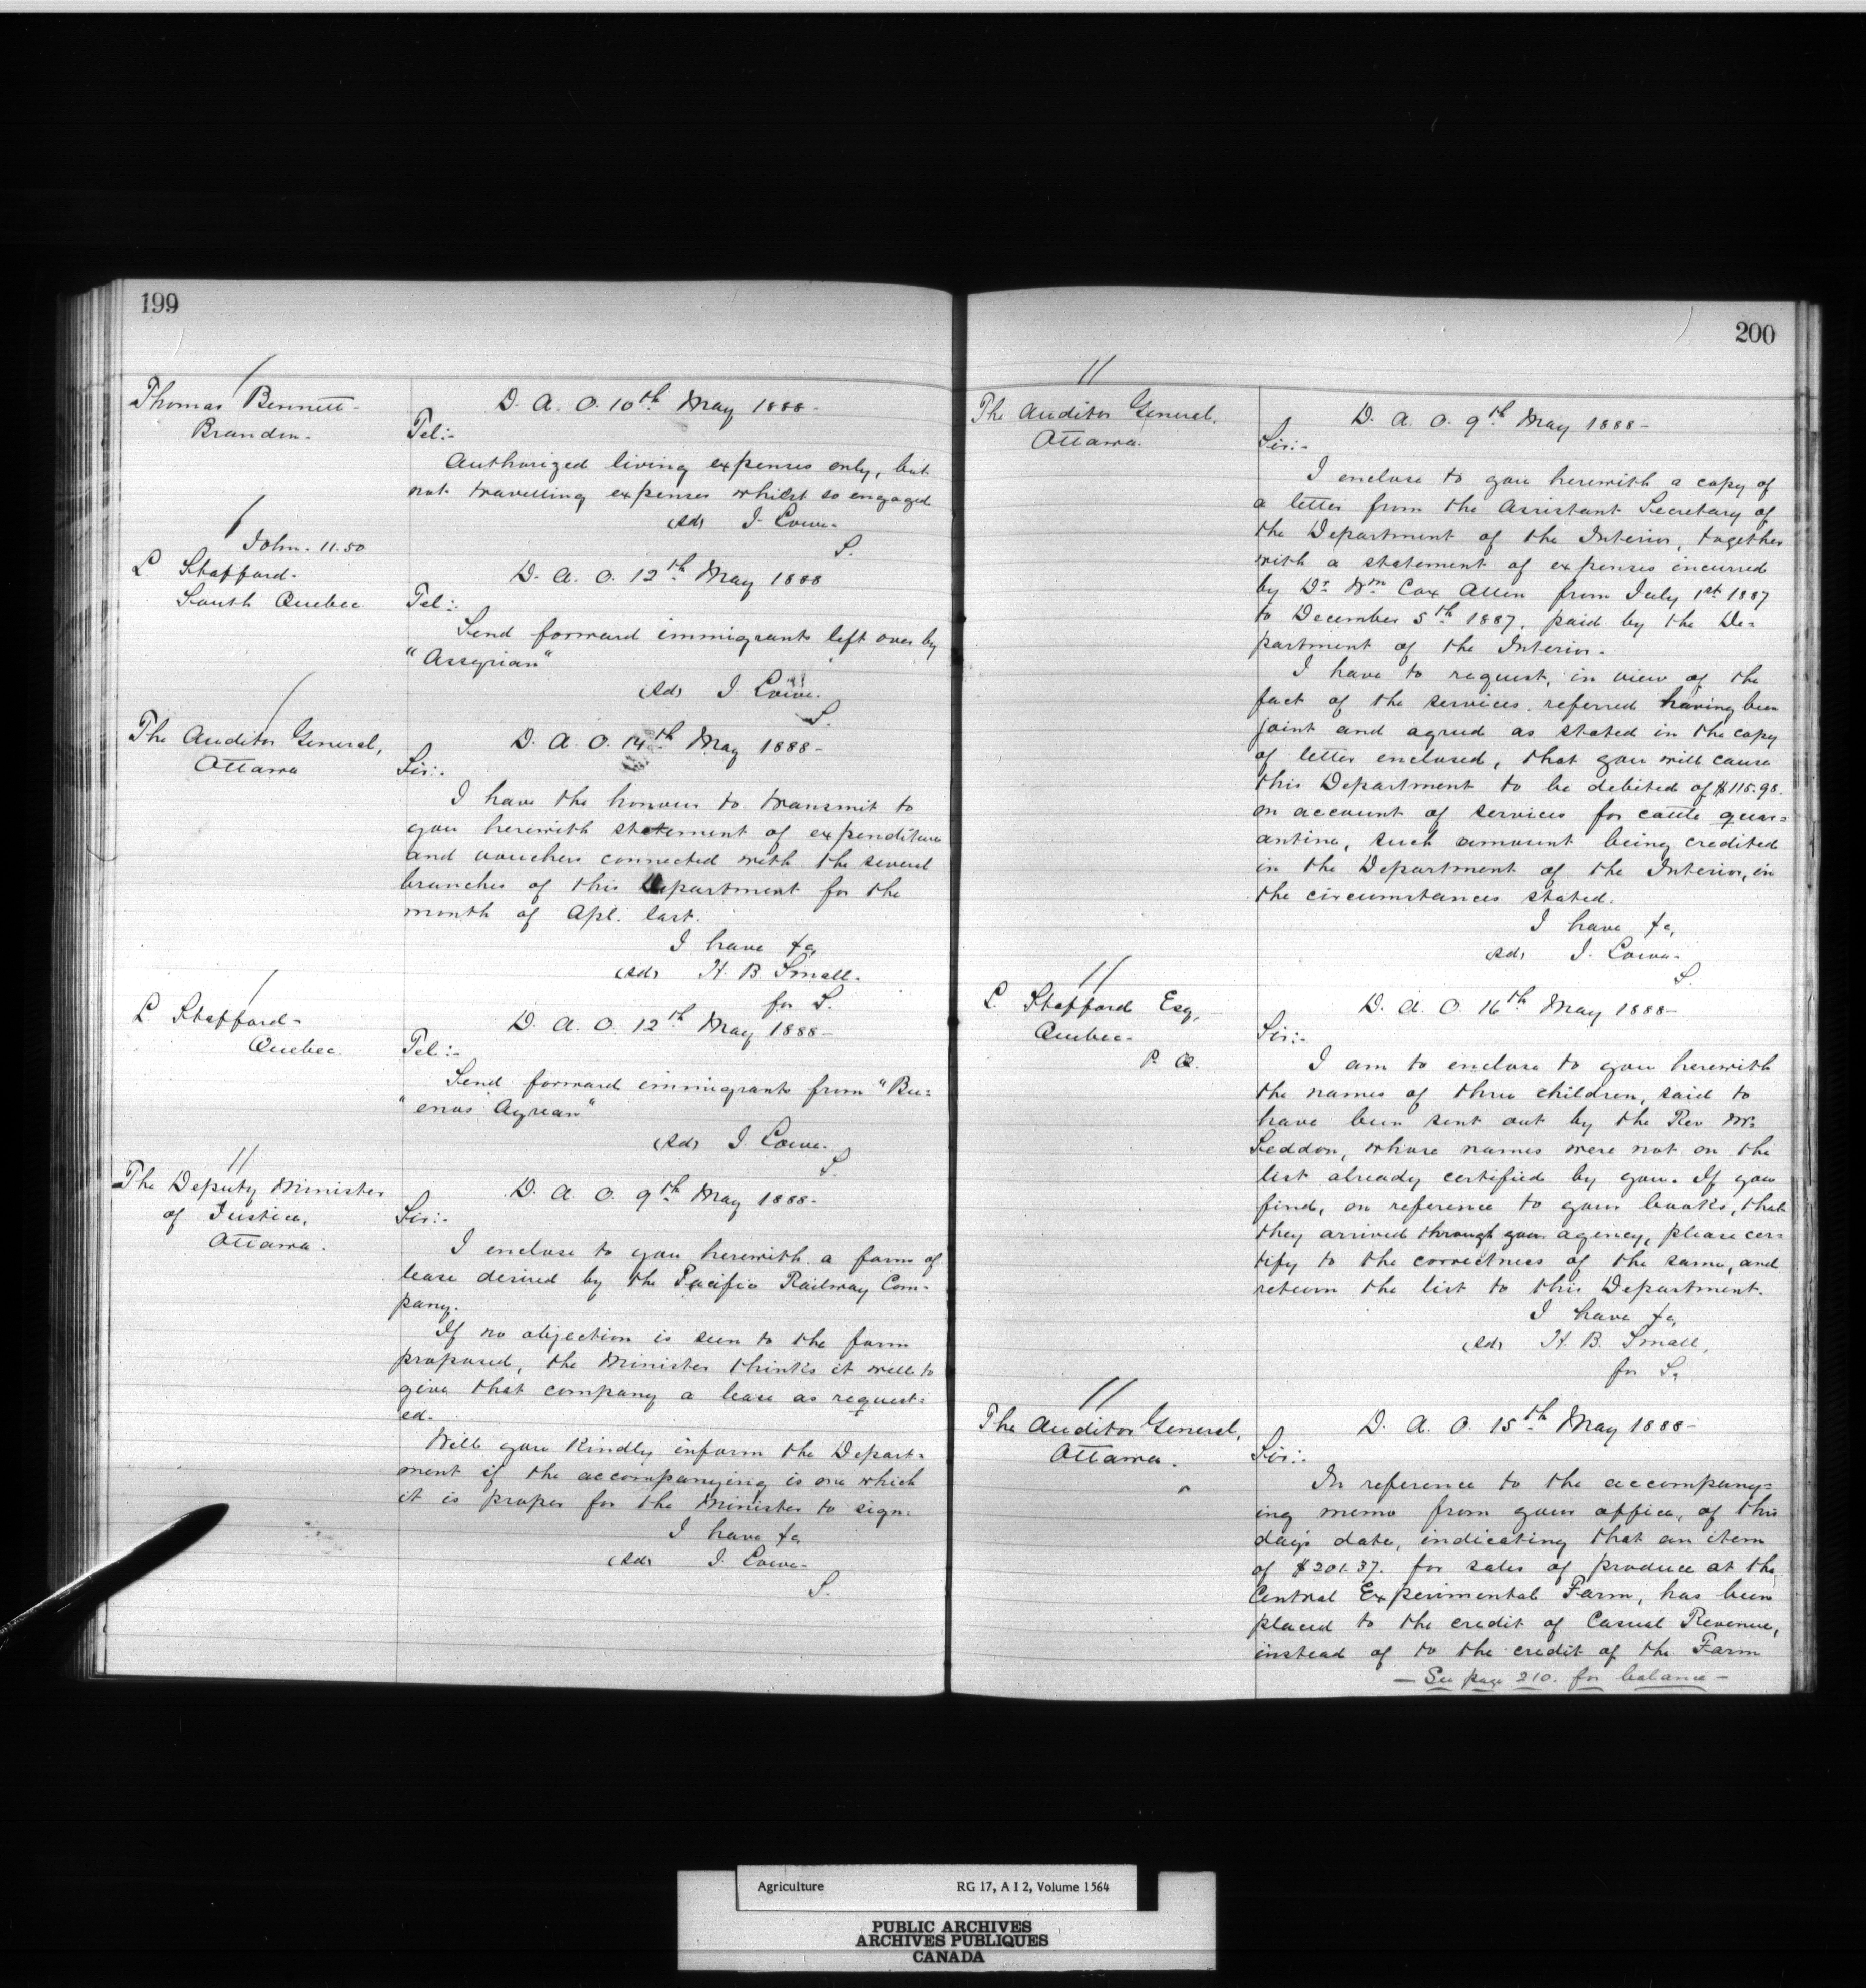 199
Thomas Bennett-
Brandon-
D. A. O. 10th May 1888-
Tel:-
Authorized living expenses only, but
not travelling expenses whilst so engaged
(Sd) J. Lowe-
S.
John. 11.50
L Stafford-
South Quebec
D. A. O. 12th May 1888
Tel:-
Send forward immigrants left over by
"Assyrian"
(Sd) J. Lowe.
S.
The Auditor General,
Ottawa
D. A. O. 14th May 1888-
Sir:-
I have the honour to transmit to
you herewith statement of expenditure
and vouchers connected with the several
branches of this Department for the
month of Apl. last.
I have &c,
(Sd) H. B. Small-
for S.
L. Stafford-
Quebec.
D. A. O. 12th May 1888-
Tel:-
Send forward immigrants from "Bu-
"enos Ayrean"
(Sd) J. Lowe-
S.
The Deputy Minister
of Justice,
Ottawa.
D. A. O. 9th May 1888-
Sir:-
I enclose to you herewith a form of
lease desired by the Pacific Railway Com-
pany.
If no objection is seen to the form
proposed, the Minister thinks it well to
give that company a lease as request-
ed.
Will you kindly inform the Depart-
ment if the accompanying is one which
it is proper for the Minister to sign.
I have &c
(Sd) J. Lowe-
S.
200
The Auditor General.
Ottawa.
D. A. O. 9th May 1888-
Sir:-
I enclose to you herewith a copy of
a letter from the Assistant Secretary of
the Department of the Interior, together
with a statement of expenses incurred
by Dr. Wm Cox Allen from July 1st 1887
to December 5th 1887, paid by the De-
partment of the Interior.
I have to request, in view of the
fact of the services referred having been
joint and agreed as stated in the copy
of letter enclosed, that you will cause
this Department to be debited of $115.98.
on account of services for cattle quar-
antine, such amount being credited
in the Department of the Interior, in
the circumstances stated.
I have &c,
(Sd) J. Lowe-
S.
L. Stafford Esq,
Quebec-
P. Q.
D. A. O. 16th May 1888-
Sir:-
I am to enclose to you herewith
the names of three children, said to
have been sent out by the Rev Mr.
Seddon, whose names were not on the
list already certified by you. If you
find, on reference to your books, that
they arrived through your agency, please cer-
tify to the correctness of the same, and
return the list to this Department.
I have &c,
(Sd) H. B. Small,
for S.
The Auditor General,
Ottawa.
D. A. O. 15th May 1888-
Sir:-
In reference to the accompany-
ing memo from your office, of this
day's date, indicating that an item
of $201.37. for sales of produce at the
Central Experimental Farm, has been
placed to the credit of Casual Revenue,
instead of to the credit of the Farm
- See page 210. for balance -
Agriculture RG 17, A I 2, Volume 1564
PUBLIC ARCHIVES
ARCHIVES PUBLIQUES
CANADA